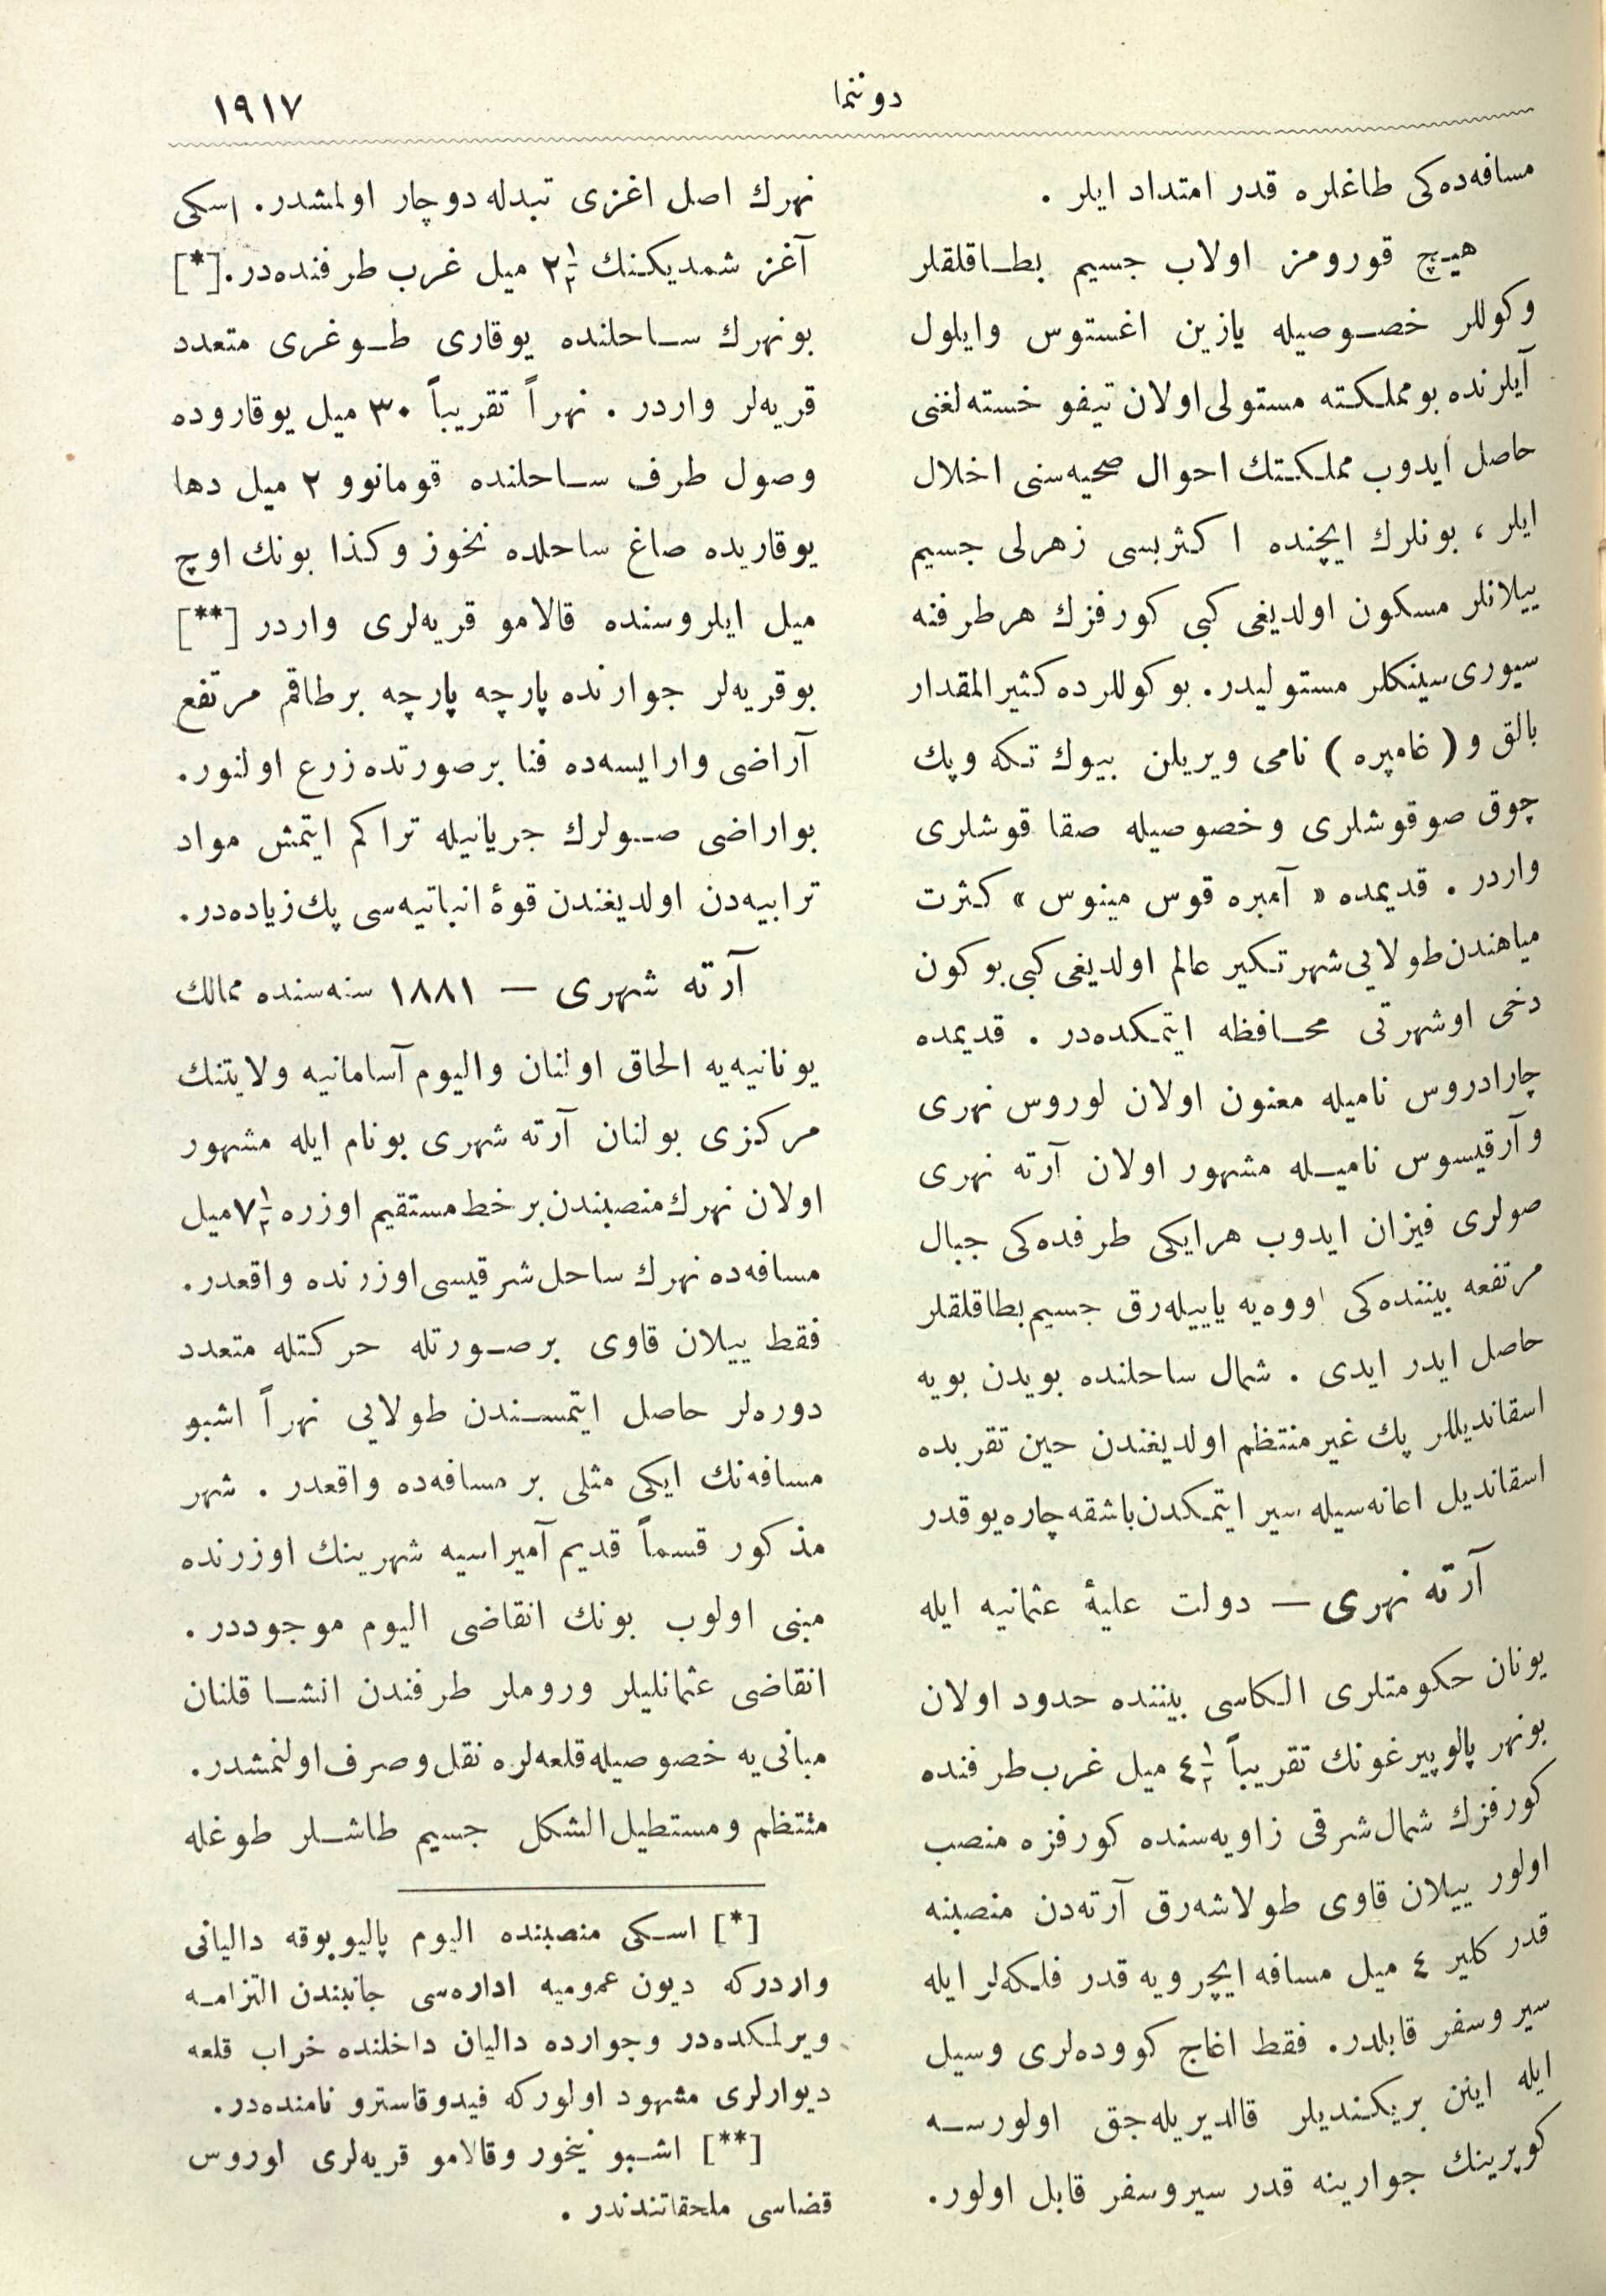 دوننما
١٩١٧
مسافه‌ده‌كی طاغلره قدر امتداد ایلر .
هیچ قورومز اولاب جسیم بطاقلقلر
وكوللر خصوصیله یازین اغستوس وایلول
آیلرنده بومملكته مستولی اولان تیفو خسته‌لغنی
حاصل ایدوب مملكتك احوال صحیه‌سنی اخلال
ایلر ، بونلرك ایچنده اكثریسی زهرلی جسیم
ییلانلر مسكون اولدیغی كبی كورفزك هرطرفنه
سیوری‌سینكلر مستولیدر. بوكوللرده كثیرالمقدار
بالق و ( غامپره ) نامی ویریلن بیوك تكه وپك
چوق صوقوشلری وخصوصیله صقا قوشلری
واردر . قدیمده « آمبره قوس مینوس » كثرت
میاهندن طولایی شهرتكیر عالم اولدیغی كبی بوكون
دخی اوشهرتی محافظه ایتمكده‌در . قدیمده
چارادروس نامیله معنون اولان لوروس نهری
وآرقیسوس نامیله مشهور اولان آرته نهری
صولری فیزان ایدوب هرایكی طرفده‌كی جبال
مرتفعه بیننده‌كی اووه‌یه یاییله‌رق جسیم بطاقلقلر
حاصل ایدر ایدی . شمال ساحلنده بویدن بویه
اسقاندیللر پك غیرمنتظم اولدیغندن حین تقربده
اسقاندیل اعانه‌سیله سیر ایتمكدن باشقه چاره یوقدر
آرته نهری — دولت علیۀ عثمانیه ایله
یونان حكومتلری الكاسی بیننده حدود اولان
بونهر پالوپیرغونك تقریباً ٤١⁄٢ میل غرب طرفنده
كورفزك شمال‌شرقی زاویه‌سنده كورفزه منصب
اولور ییلان قاوی طولاشه‌رق آرته‌دن منصبنه
قدر كلیر ٤ میل مسافه ایچرویه قدر فلكه‌لر ایله
سیروسفر قابلدر. فقط اغاج كووده‌لری وسیل
ایله اینن بریكندیلر قالدیریله‌جق اولورسه
كوپرینك جوارینه قدر سیروسفر قابل اولور.
نهرك اصل اغزی تبدله دوچار اولمشدر. اسكی
آغز شمدیكنك ٢١⁄٢ میل غرب طرفنده‌در.[*]
بونهرك ساحلنده یوقاری طوغری متعدد
قریه‌لر واردر . نهراً تقریباً ٣٠ میل یوقاروده
وصول طرف ساحلنده قومانوو ٢ میل دها
یوقاریده صاغ ساحلده نخوز وكذا بونك اوچ
میل ایلروسنده قالامو قریه‌لری واردر [**]
بوقریه‌لر جوارنده پارچه پارچه برطاقم مرتفع
آراضی وارایسه‌ده فنا برصورتده زرع اولنور.
بواراضی صولرك جریانیله تراكم ایتمش مواد
ترابیه‌دن اولدیغندن قوۀ انباتیه‌سی پك زیاده‌در.
آرته شهری — ١٨٨١ سنه‌سنده ممالك
یونانیه‌یه الحاق اولنان والیوم آسامانیه ولایتنك
مركزی بولنان آرته شهری بونام ایله مشهور
اولان نهرك منصبندن برخط مستقیم اوزره ٧١⁄٢ میل
مسافه‌ده نهرك ساحل شرقیسی اوزرنده واقعدر.
فقط ییلان قاوی برصورتله حركتله متعدد
دوره‌لر حاصل ایتمسندن طولایی نهراً اشبو
مسافه‌نك ایكی مثلی بر مسافه‌ده واقعدر . شهر
مذكور قسماً قدیم آمیراسیه شهرینك اوزرنده
مبنی اولوب بونك انقاضی الیوم موجوددر .
انقاضی عثمانلیلر وروملر طرفندن انشا قلنان
مبانی‌یه خصوصیله قلعه‌لره نقل وصرف اولنمشدر.
منتظم ومستطیل‌الشكل جسیم طاشلر طوغله
[*] اسكی منصبنده الیوم پالیوبوقه دالیانی
واردركه دیون عمومیه اداره‌سی جانبندن التزامه
ویرلمكده‌در وجوارده دالیان داخلنده خراب قلعه
دیوارلری مشهود اولوركه فیدوقاسترو نامنده‌در.
[**] اشبو نیخور وقالامو قریه‌لری لوروس
قضاسی ملحقاتندندر .